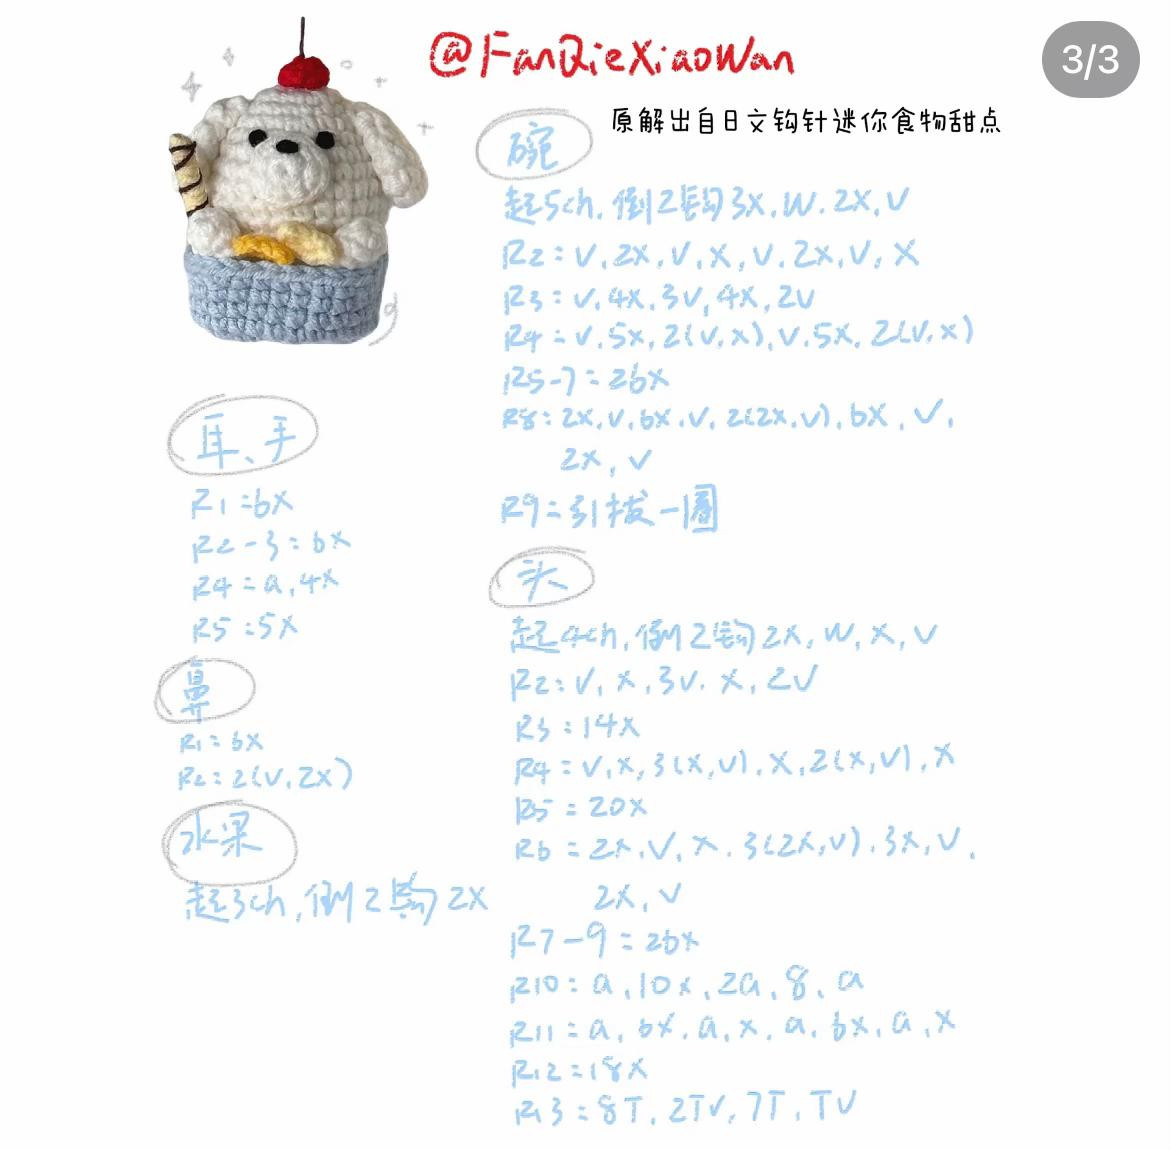 @FanQieXiaoWan
3/3
原解出自日文钩针迷你食物甜点
碗
起5ch,倒2钩3x,W,2x,V
R2:V,2x,V,x,V,2x,V,x
R3:V,4x,3V,4x,2V
R4:V,5x,2(V,x),V,5x,2(V,x)
R5-7:26x
R8:2x,V,6x,V,2(2x,V),6x,V,
2x,V
R9:引拔一圈
耳、手
R1:6x
R2-3:6x
R4:a,4x
R5:5x
鼻
R1:6x
R2:2(V,2x)
水果
起3ch,倒2钩2x
头
起4ch,倒2钩2x,W,x,V
R2:V,x,3V,x,2V
R3:14x
R4:V,x,3(x,V),x,2(x,V),x
R5:20x
R6:2x,V,x,3(2x,V),3x,V,
2x,V
R7-9:26x
R10:a,10x,2a,8,a
R11:a,6x,a,x,a,6x,a,x
R12:18x
R13:8T,2TV,7T,TV